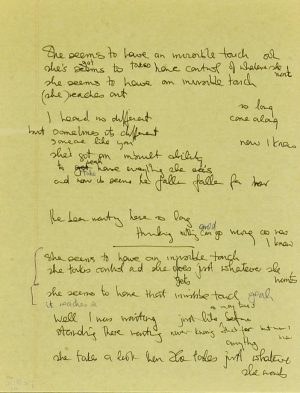 She seems to have an invisible touch ooh
she's got seems to takes have control of whatever she wants
she seems to have an invisible touch
(she) reaches out
so long
I heard no different come along
but sometimes it different
someone like you now I know
she's got an inbuilt ability
to take everything she sees
and now it seems he fallen fallen for her
I've been waiting here so long
thinking could go on
She seems to have an invisible touch
she takes control and she does just whatever she wants
gets
she seems to have that invisible touch yeah
it reaches
Well I was waiting just like before
standing there waiting never knowing
anything
she takes a look then she takes just whatever
she wants